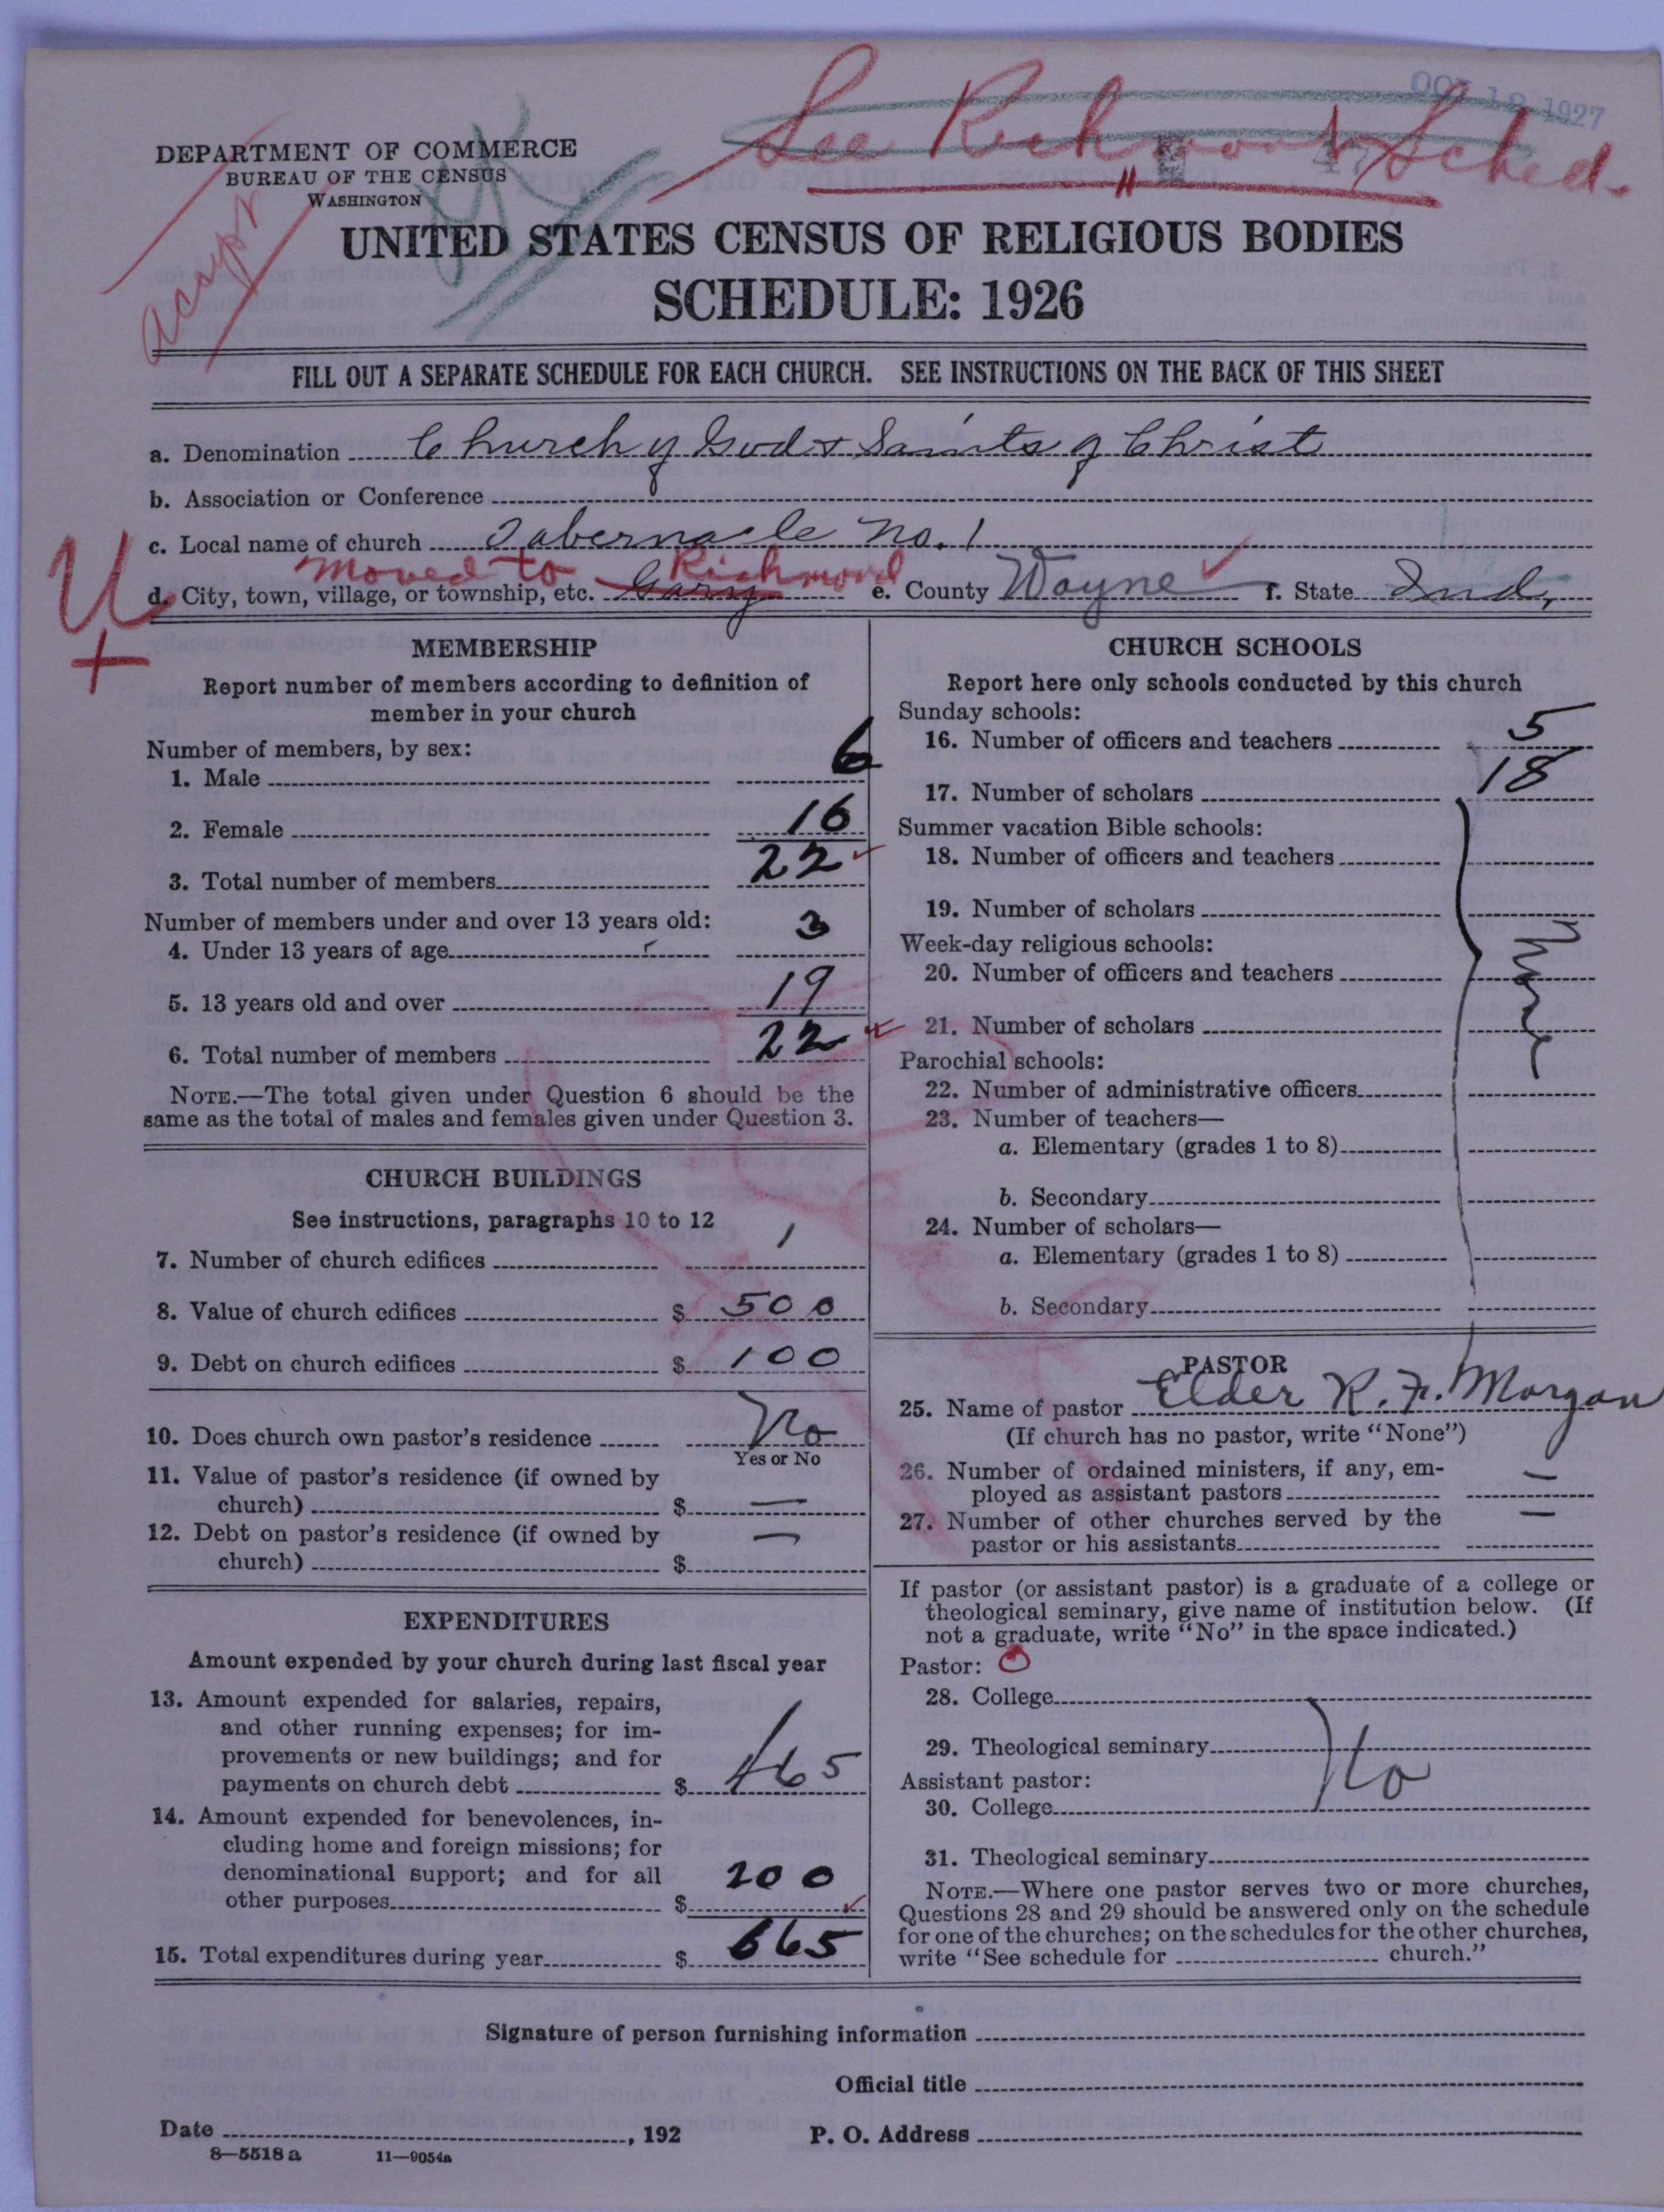 OCT 12 1927
See Richmond Sched.
DEPARTMENT OF COMMERCE
BUREAU OF THE CENSUS
WASHINGTON
UNITED STATES CENSUS OF RELIGIOUS BODIES
SCHEDULE: 1926
FILL OUT A SEPARATE SCHEDULE FOR EACH CHURCH. SEE INSTRUCTIONS ON THE BACK OF THIS SHEET
a. Denomination Church of God & Saints of Christ
b. Association or Conference
c. Local name of church Tabernacle No. 1
moved to Richmond
d. City, town, village, or township, etc. Gary e. County Wayne f. State Ind.
U
+
MEMBERSHIP
Report number of members according to definition of
member in your church
Number of members, by sex:
1. Male 6
2. Female 16
3. Total number of members 22
Number of members under and over 13 years old:
4. Under 13 years of age 3
5. 13 years old and over 19
6. Total number of members 22
NOTE.—The total given under Question 6 should be the
same as the total of males and females given under Question 3.
CHURCH BUILDINGS
See instructions, paragraphs 10 to 12
7. Number of church edifices 1
8. Value of church edifices $ 500
9. Debt on church edifices $ 100
10. Does church own pastor's residence No
Yes or No
11. Value of pastor's residence (if owned by
church) $ —
12. Debt on pastor's residence (if owned by
church) $ —
EXPENDITURES
Amount expended by your church during last fiscal year
13. Amount expended for salaries, repairs,
and other running expenses; for im-
provements or new buildings; and for
payments on church debt $ 465
14. Amount expended for benevolences, in-
cluding home and foreign missions; for
denominational support; and for all
other purposes $ 200
15. Total expenditures during year $ 665
CHURCH SCHOOLS
Report here only schools conducted by this church
Sunday schools:
16. Number of officers and teachers 5
17. Number of scholars 18
Summer vacation Bible schools:
18. Number of officers and teachers
19. Number of scholars
Week-day religious schools:
20. Number of officers and teachers
None
21. Number of scholars
Parochial schools:
22. Number of administrative officers
23. Number of teachers—
a. Elementary (grades 1 to 8)
b. Secondary
24. Number of scholars—
a. Elementary (grades 1 to 8)
b. Secondary
PASTOR
25. Name of pastor Elder R. F. Morgan
(If church has no pastor, write "None")
26. Number of ordained ministers, if any, em-
ployed as assistant pastors —
27. Number of other churches served by the
pastor or his assistants —
If pastor (or assistant pastor) is a graduate of a college or
theological seminary, give name of institution below. (If
not a graduate, write "No" in the space indicated.)
Pastor: 0
28. College
29. Theological seminary No
Assistant pastor:
30. College
31. Theological seminary
NOTE.—Where one pastor serves two or more churches,
Questions 28 and 29 should be answered only on the schedule
for one of the churches; on the schedules for the other churches,
write "See schedule for church."
Signature of person furnishing information
Official title
Date , 192 P. O. Address
8—5518 a 11—9054a